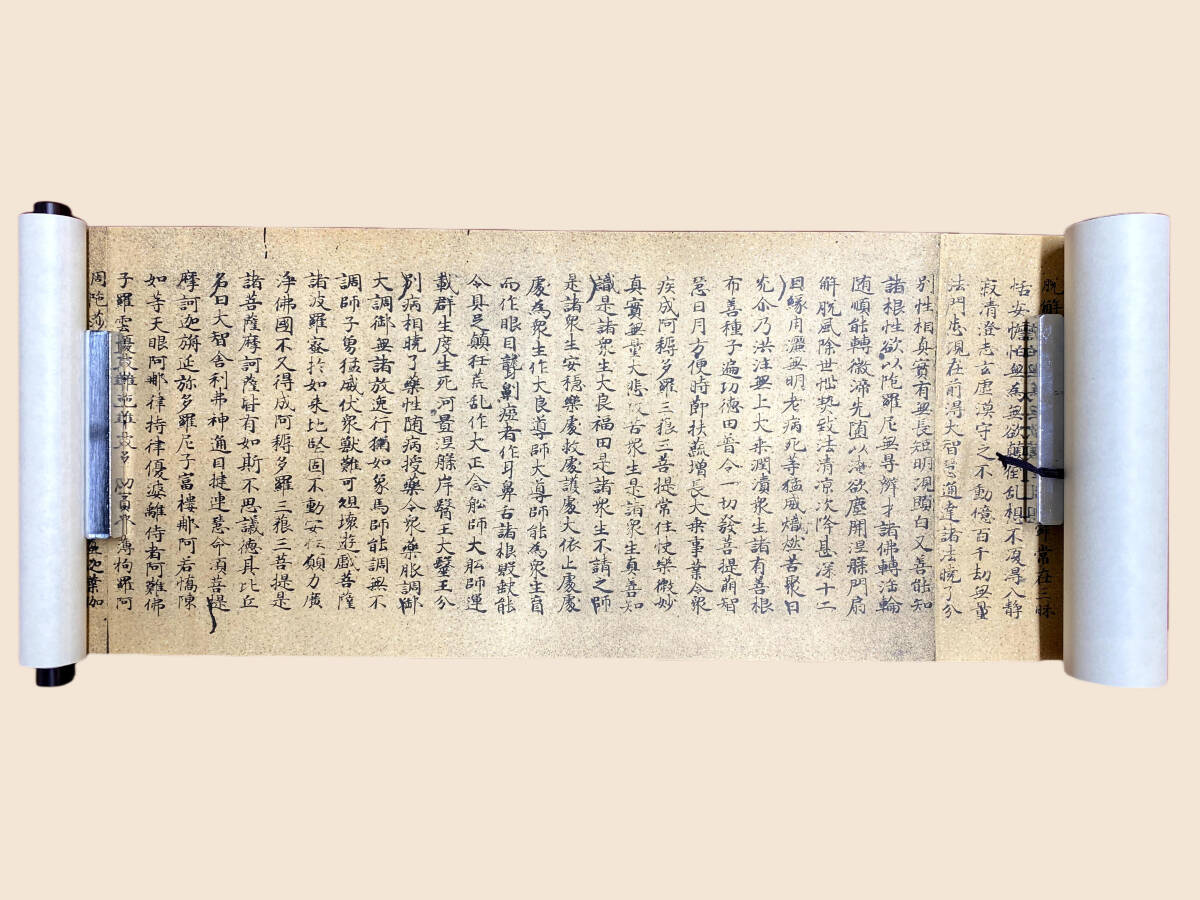 脫解常在三昧
恬安惔怕無為無欲顛倒乱想不復㝵入静
寂清澄志玄虛漠守之不動億百千劫無量
法門悉現在前得大智慧通達諸法曉了分
別性相真實有無長短明現顯白又善能知
諸根性欲以陁羅尼無㝵辯才諸佛轉法輪
随順能轉微渧先堕以淹欲塵開涅槃門扇
解脫風除世惱熱致法清凉次降甚深十二
因縁用灑無明老病死等猛盛熾燃苦聚日
光尒乃洪注無上大乗潤漬衆生諸有善根
布善種子遍功德田普令一切發菩提萌智
慧日月方便時節扶蔬增長大乗事業令衆
疾成阿耨多羅三藐三菩提常住快樂微妙
真實無量大悲救苦衆生是諸衆生真善知
識是諸衆生大良福田是諸衆生不請之師
是諸衆生安穏樂處救處護處大依止處處
處為衆生作大良導師大導師能為衆生盲
而作眼目聾劓瘂者作耳鼻舌諸根毀缺能
令具足顛狂荒乱作大正念舩師大舩師運
載群生度生死河置涅槃岸醫王大醫王分
別病相曉了藥性随病授藥令衆藥服調御
大調御無諸放逸行猶如象馬師能調無不
調師子勇猛威伏衆獸難可俎壊遊戲菩薩
諸波羅蜜於如来比堅固不動安住願力廣
浄佛國不又得成阿耨多羅三藐三菩提是
諸菩薩摩訶薩皆有如斯不思議德具比丘
名曰大智舎利弗神通目揵連慧命湏菩提
摩訶迦旃延弥多羅尼子富樓那阿若憍陳
如等天眼阿那律持律優婆離侍者阿難佛
子羅雲薄拘羅阿
周陁迦葉加